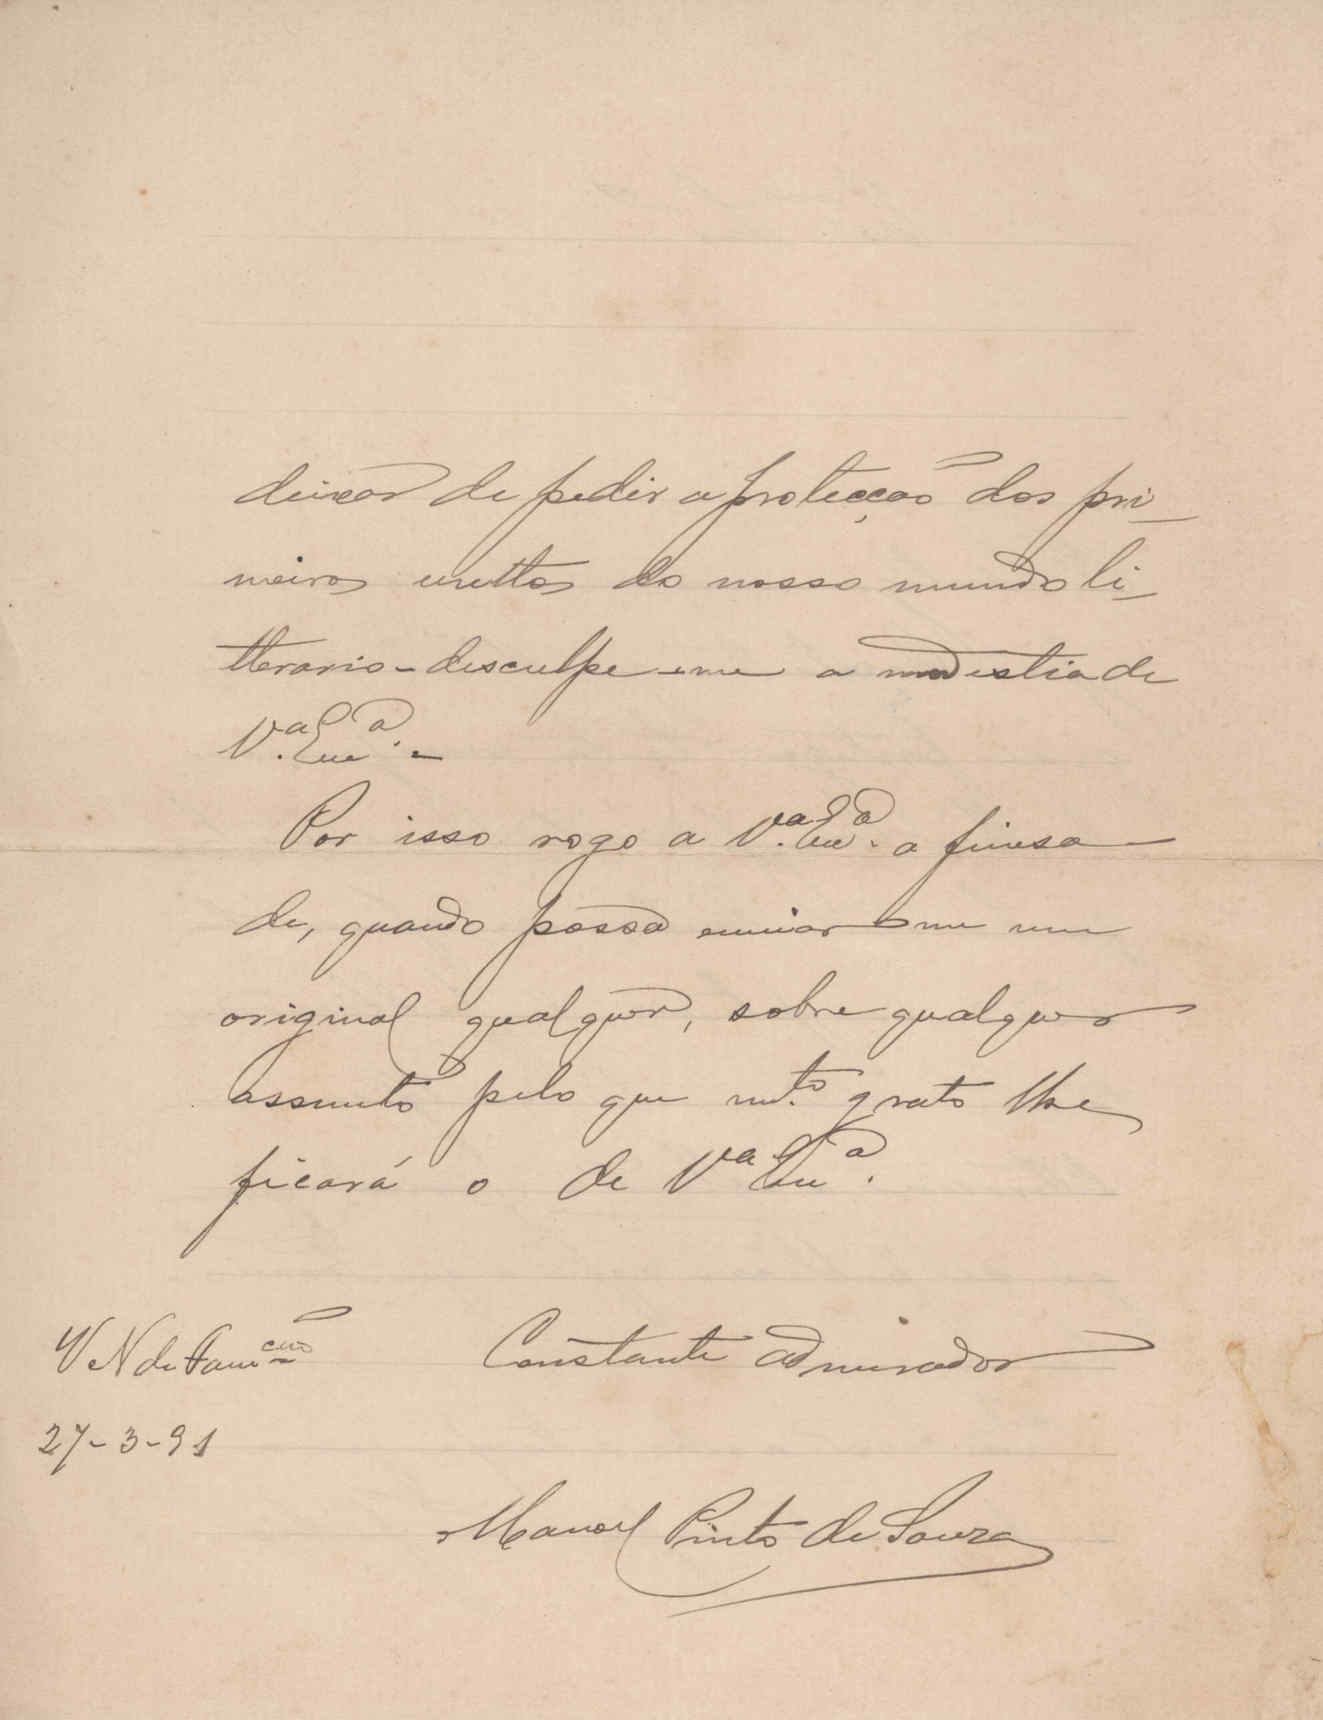 deixar de pedir a protecção dos pri-
meiros vultos do nosso mundo li-
tterario - desculpe-me a modestia de
V.ª Ex.ª -
Por isso rogo a V.ª Ex.ª a finesa
de, quando possa enviar-me um
original qualquer, sobre qualquer
assumto pelo que m.to grato lhe
ficará o de V.ª Ex.ª
V.ª N. de Fam.cão Constante admirador
27-3-91
Manoel Pinto de Souza